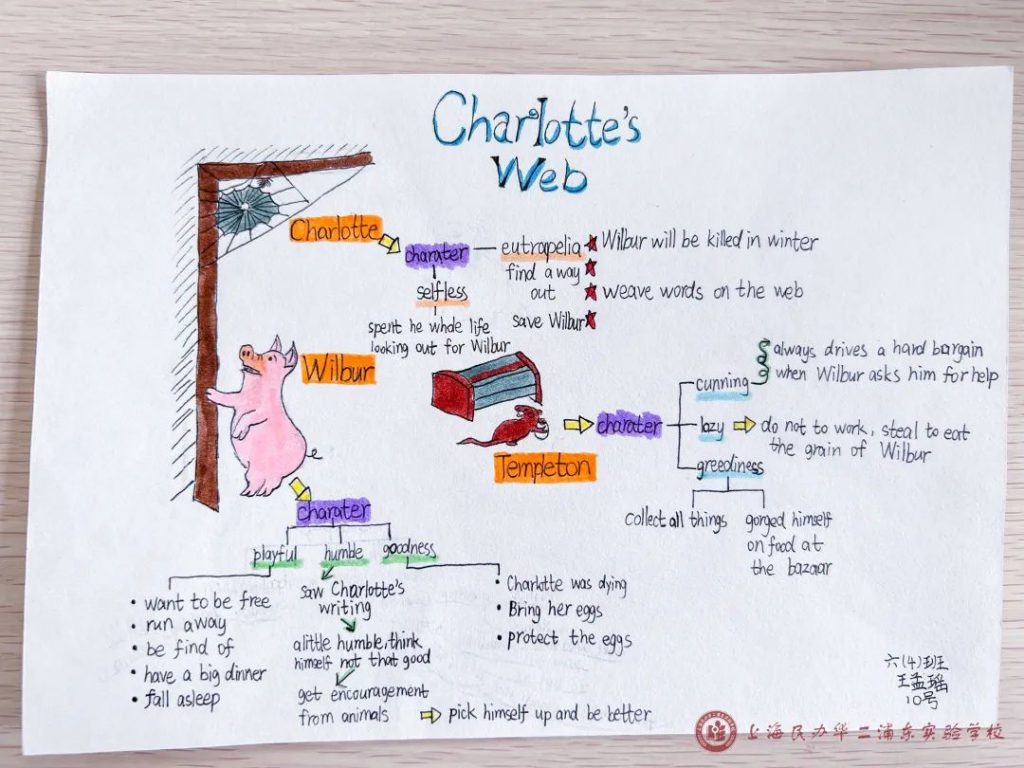 Charlotte's
Web
Charlotte
charater
eutrapelia
Wilbur will be killed in winter
find a way
out
weave words on the web
save Wilbur
selfless
spent he whole life
looking out for Wilbur
Wilbur
Templeton
charater
cunning
always drives a hard bargain
when Wilbur asks him for help
lazy
do not to work, steal to eat
the grain of Wilbur
greediness
Collect all things
gorged himself
on food at
the bazaar
charater
playful
humbe
goodness
• want to be free
• run away
• be find of
• have a big dinner
• fall asleep
saw Charlotte's
writing
alittle humble, think
himself not that good
get encouragement
from animals
pick himself up and be better
• Charlotte was dying
• Bring her eggs
• protect the eggs
六(4)班
王孟瑶
10号
上海民办华二浦东实验学校